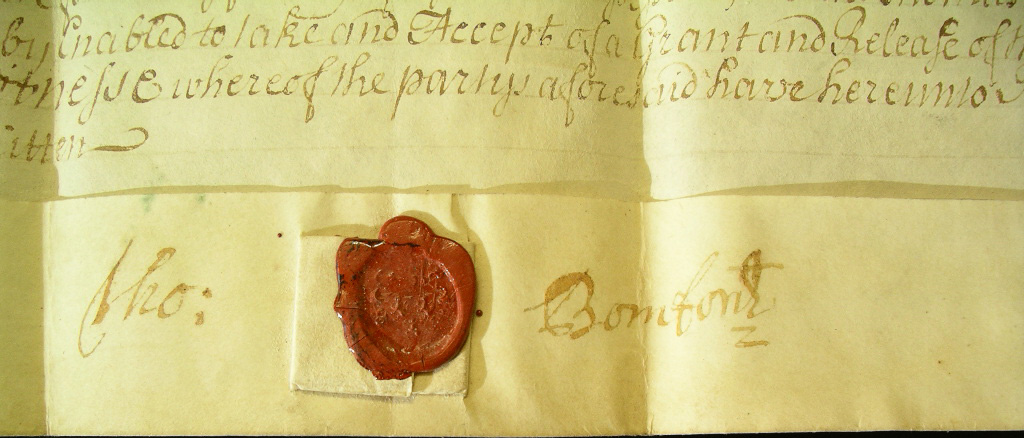 by Enabled to take and Accept of a Grant and Release of th
itnesse whereof the partys aforesaid have hereunto
itten
Tho: Bomfont